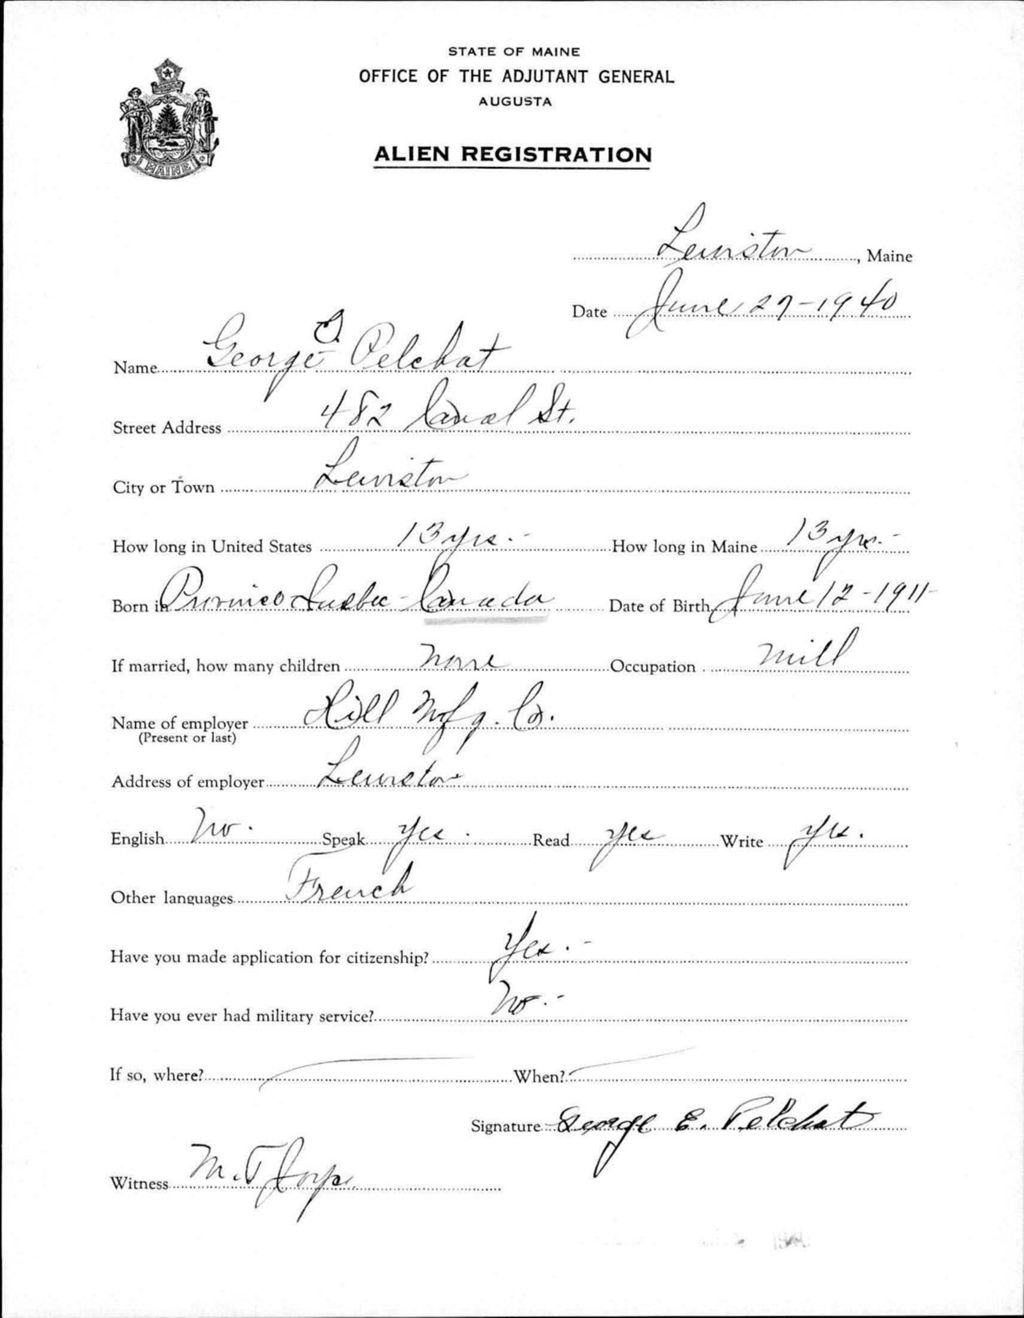 STATE OF MAINE
OFFICE OF THE ADJUTANT GENERAL
AUGUSTA
MAINE
ALIEN REGISTRATION
Lewiston, Maine
Date June 27-1940
Name George Pelchat
Street Address 482 Canal St.
City or Town Lewiston
How long in United States 13 yrs.- How long in Maine 13 yrs.-
Born in Province Quebec - Canada Date of Birth June 12-1911
If married, how many children none Occupation mill
Name of employer Hill Mfg. Co.
(Present or last)
Address of employer Lewiston
English No. Speak yes. Read yes Write yes.
Other languages French
Have you made application for citizenship? Yes.-
Have you ever had military service? No.-
If so, where? When?
Signature George E. Pelchat
Witness M.T.